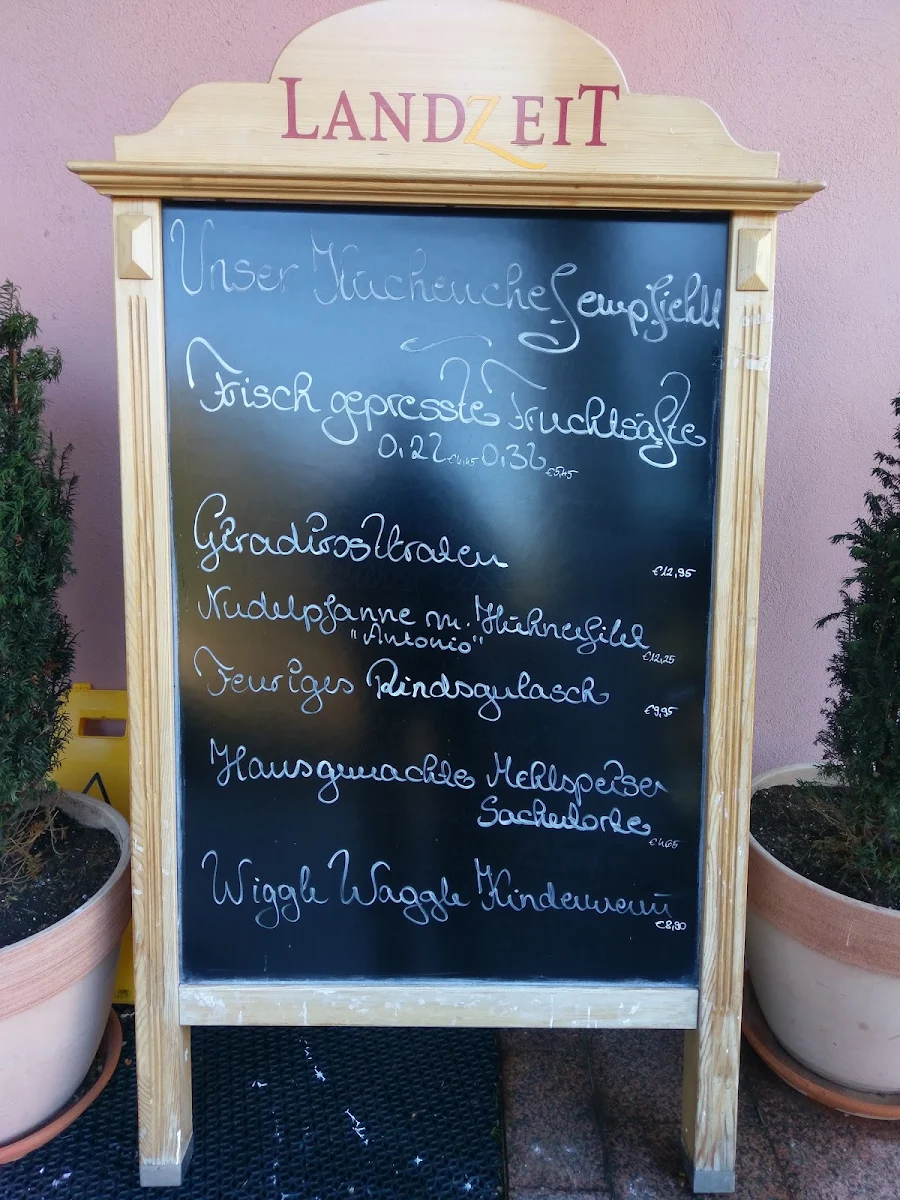 LANDZEIT
Unser Küchenchef empfiehlt
Frisch gepresste Fruchtsäfte
0,2l €4,45 0,3l €5,45
€12,95
Nudelpfanne m. Hühnerfilet
"Antonio"
€12,25
Feuriges Rindsgulasch
€9,95
Hausgemachte Mehlspeisen
Sachertorte
€4,65
Wiggle Waggle Kindermenü
€8,90